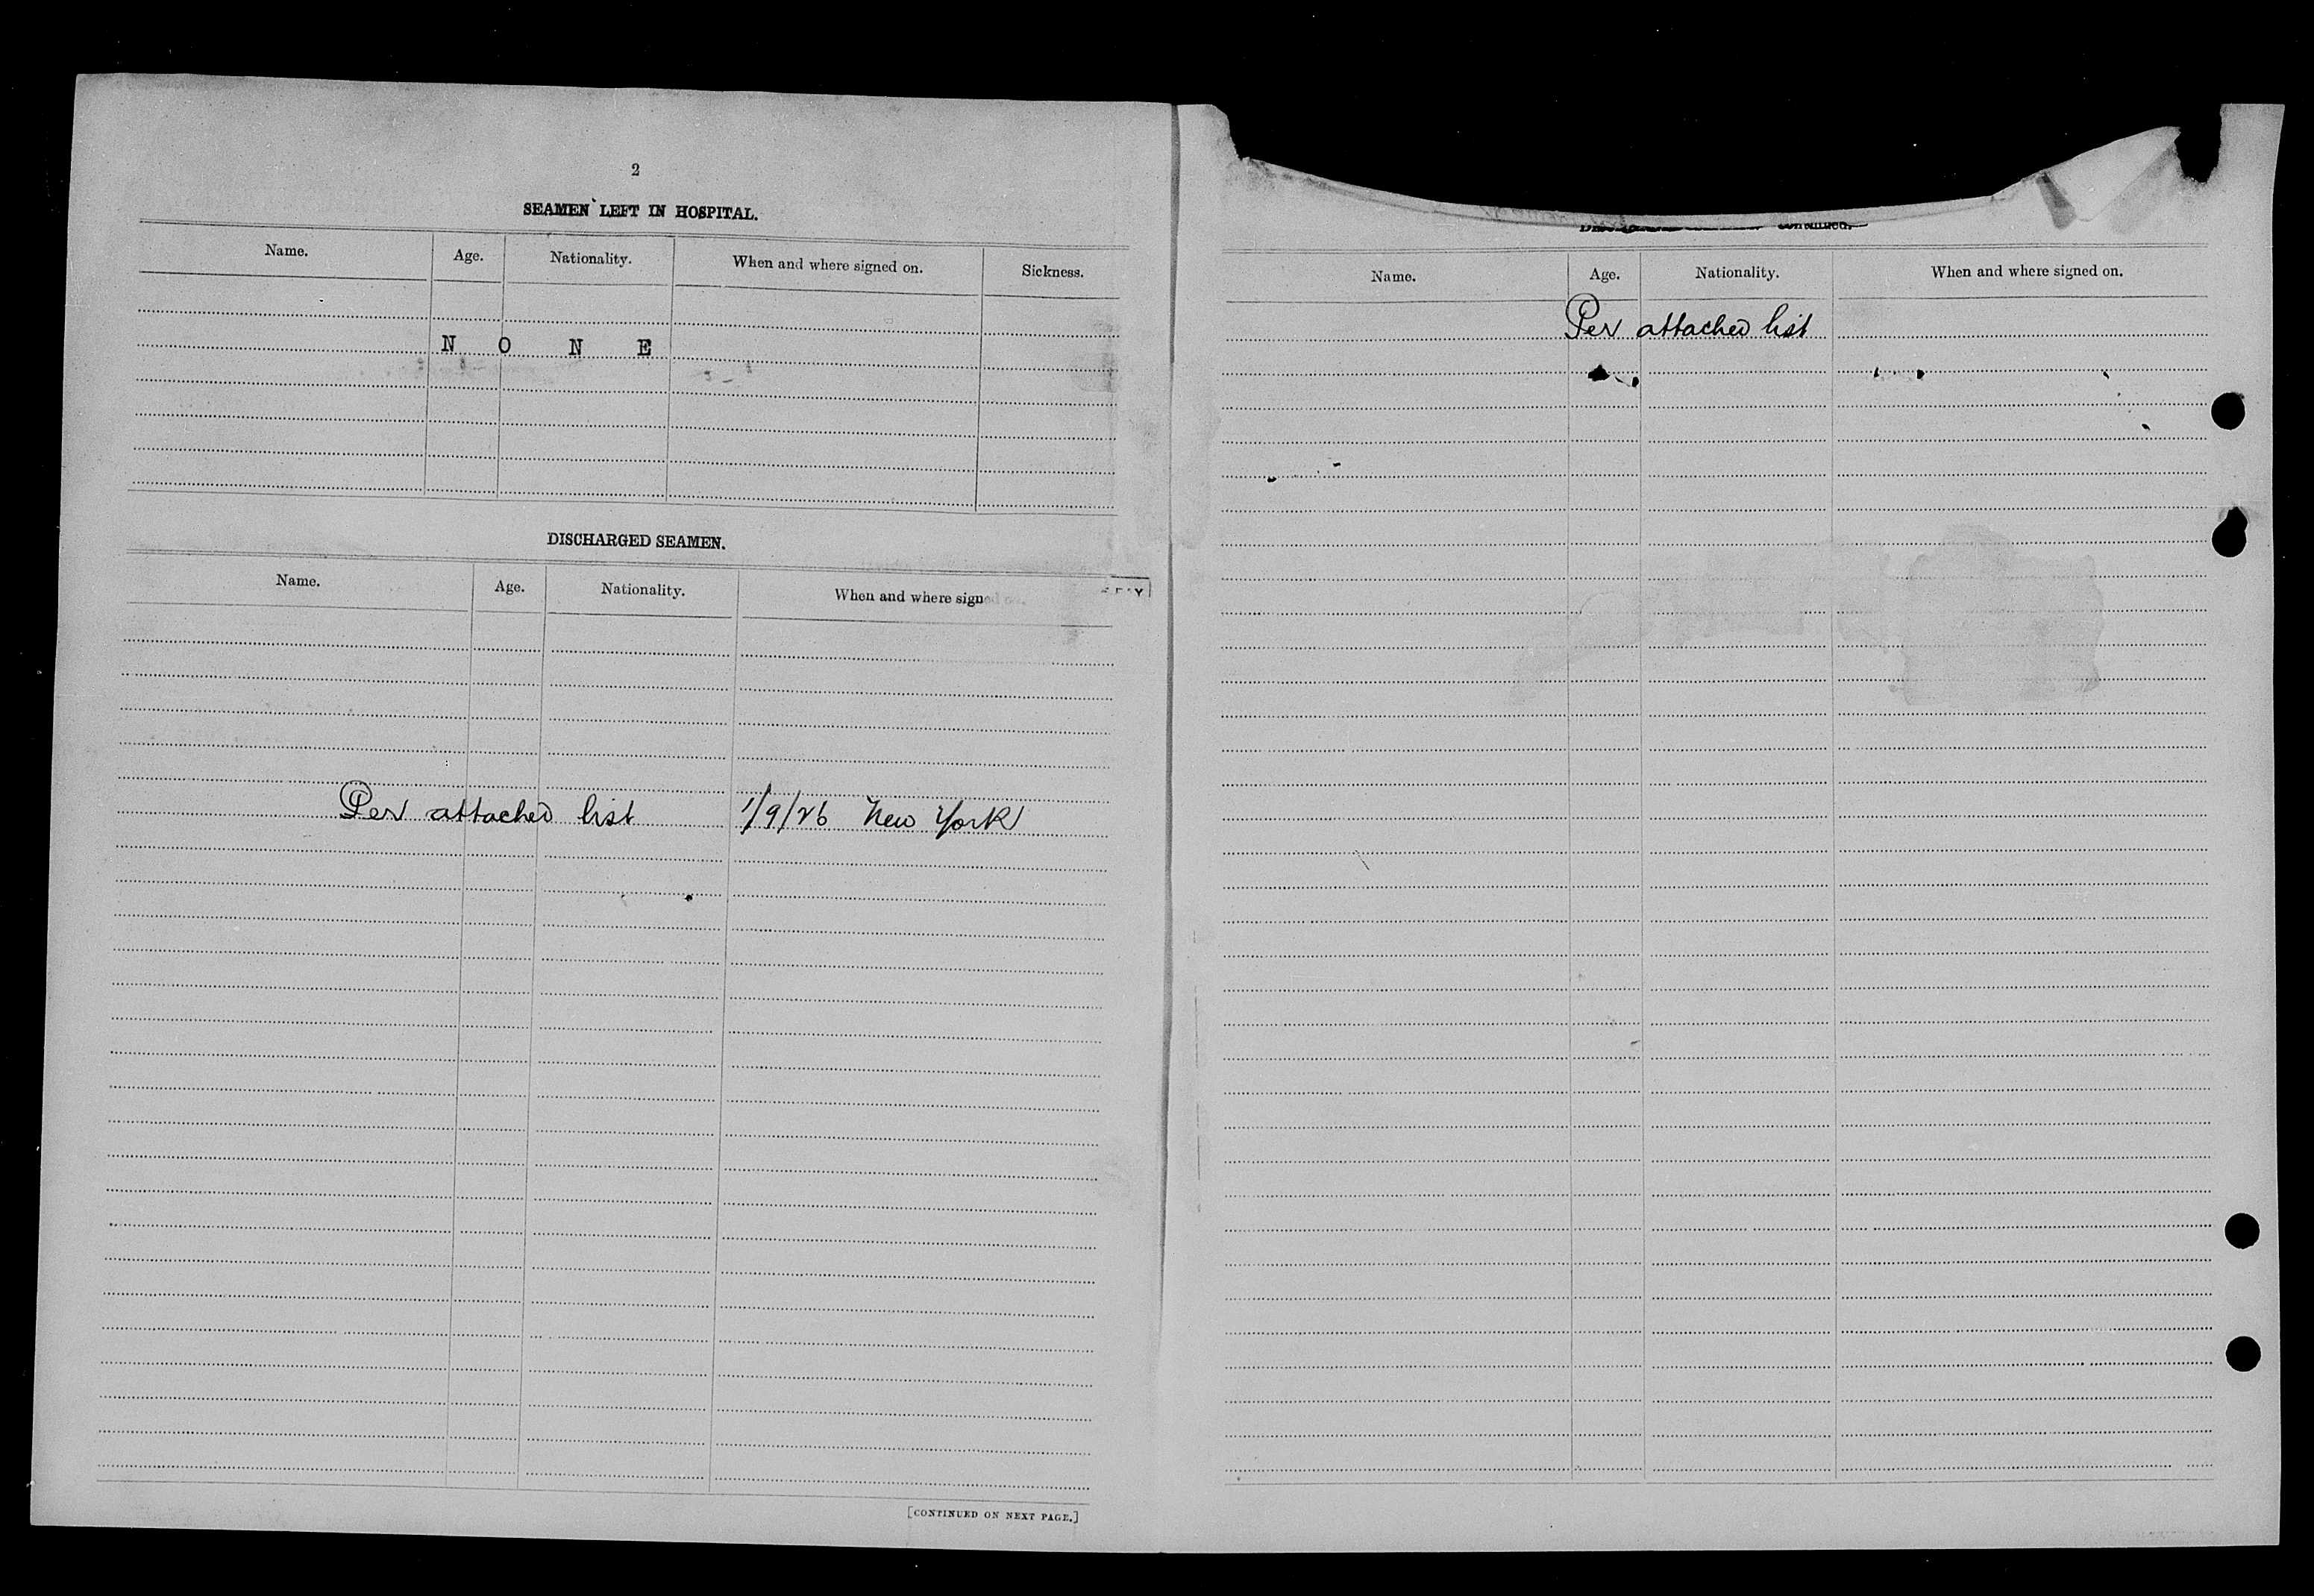 2
SEAMEN LEFT IN HOSPITAL.
Name. Age. Nationality. When and where signed on. Sickness.
N O N E
DISCHARGED SEAMEN.
Name. Age. Nationality. When and where signed on.
Per attached list 1/9/26 New York
[CONTINUED ON NEXT PAGE.]
continued.
Name. Age. Nationality. When and where signed on.
Per attached list